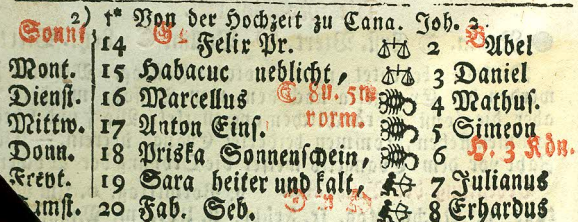 2) 1ª Von der Hochzeit zu Cana. Joh. 2.
Sonnt 14 Felix Pr. 2 Abel
Mont. 15 Habacuc neblicht, 3 Daniel
Dienst. 16 Marcellus 8 u. 5m 4 Mathus.
Mittw. 17 Anton Eins. vorm. 5 Simeon
Donn. 18 Priska Sonnenschein, 6 H. 3 Kön.
Freyt. 19 Sara heiter und kalt, 7 Julianus
Samst. 20 Fab. Seb. 8 Erhardus